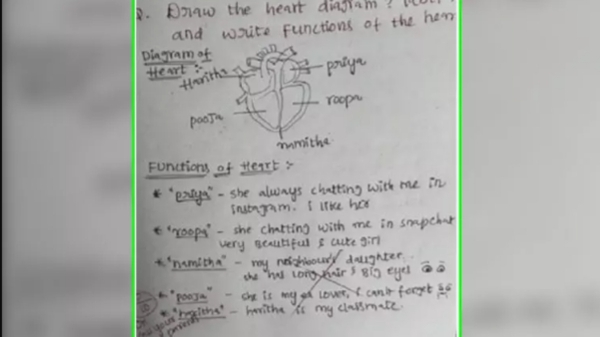 Q. Draw the heart diagram?
and write Functions of the
Diagram of
Heart :-
Haritha
priya
pooja
roopa
namitha
Functions of Heart :-
* "priya" - she always chatting with me in
instagram. i like her
* "roopa" - she chatting with me in snapchat
very Beautiful & cute girl
* "namitha" - my neighbour's daughter.
she has long hair & Big eyes
* "pooja" - she is my ex lover, i can't forget
* "haritha" - haritha is my classmate.